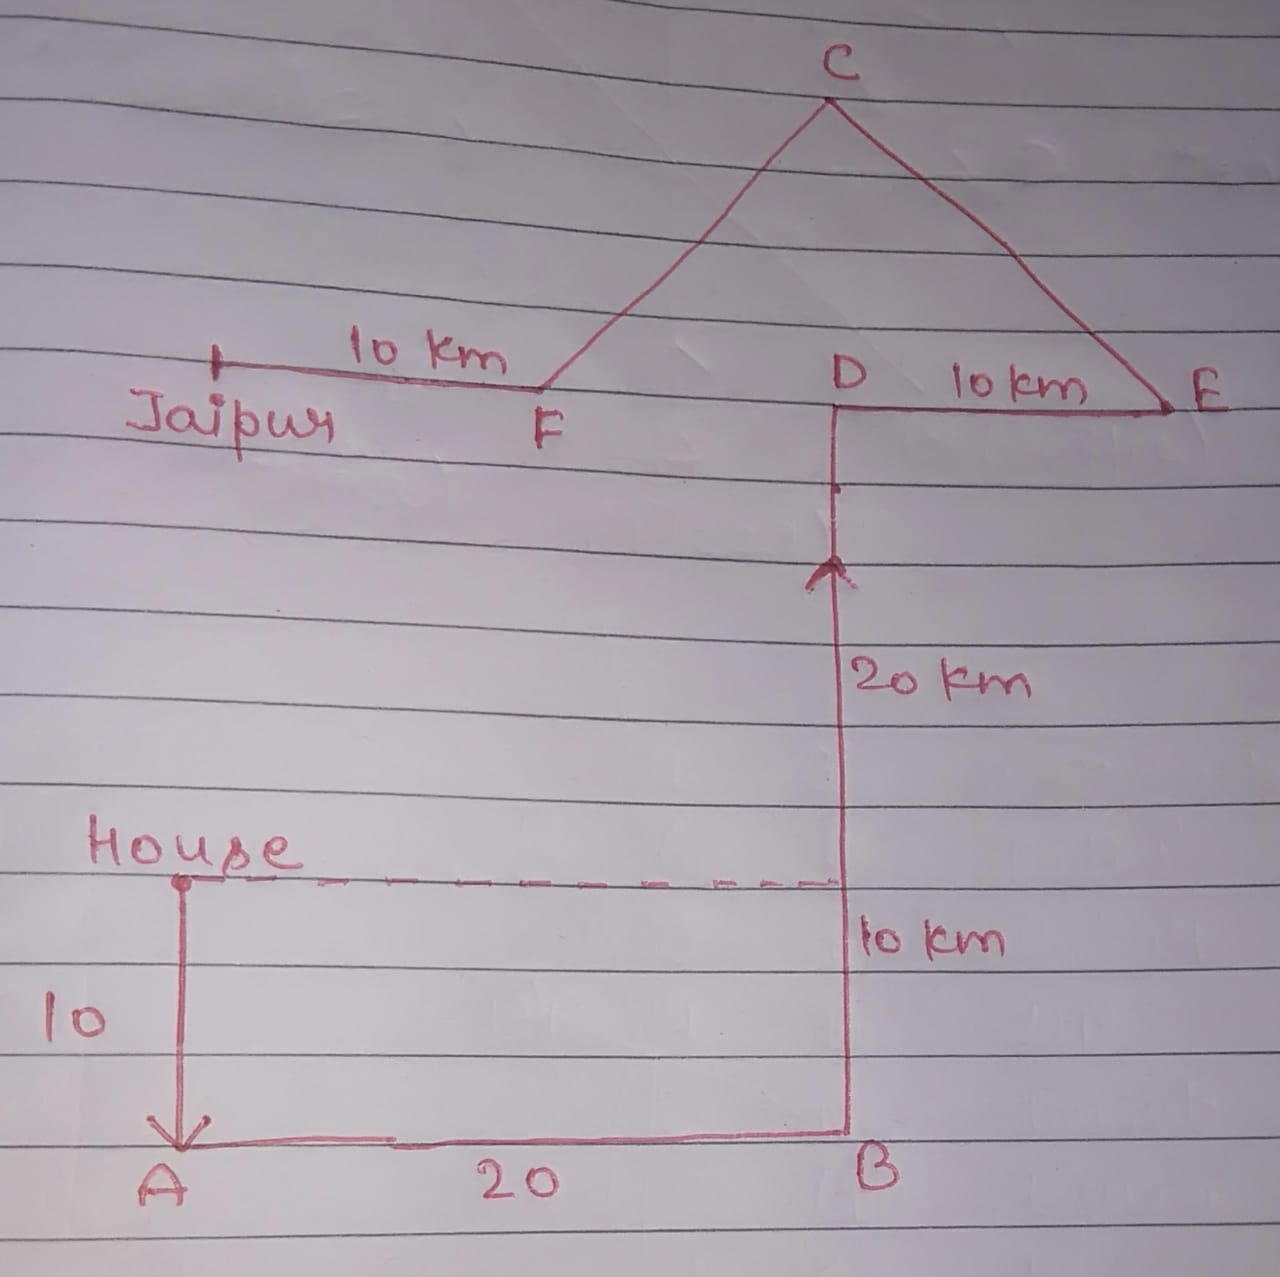 C
10 km
D
10 km
E
Jaipur
F
20 km
House
10 km
10
A
20
B